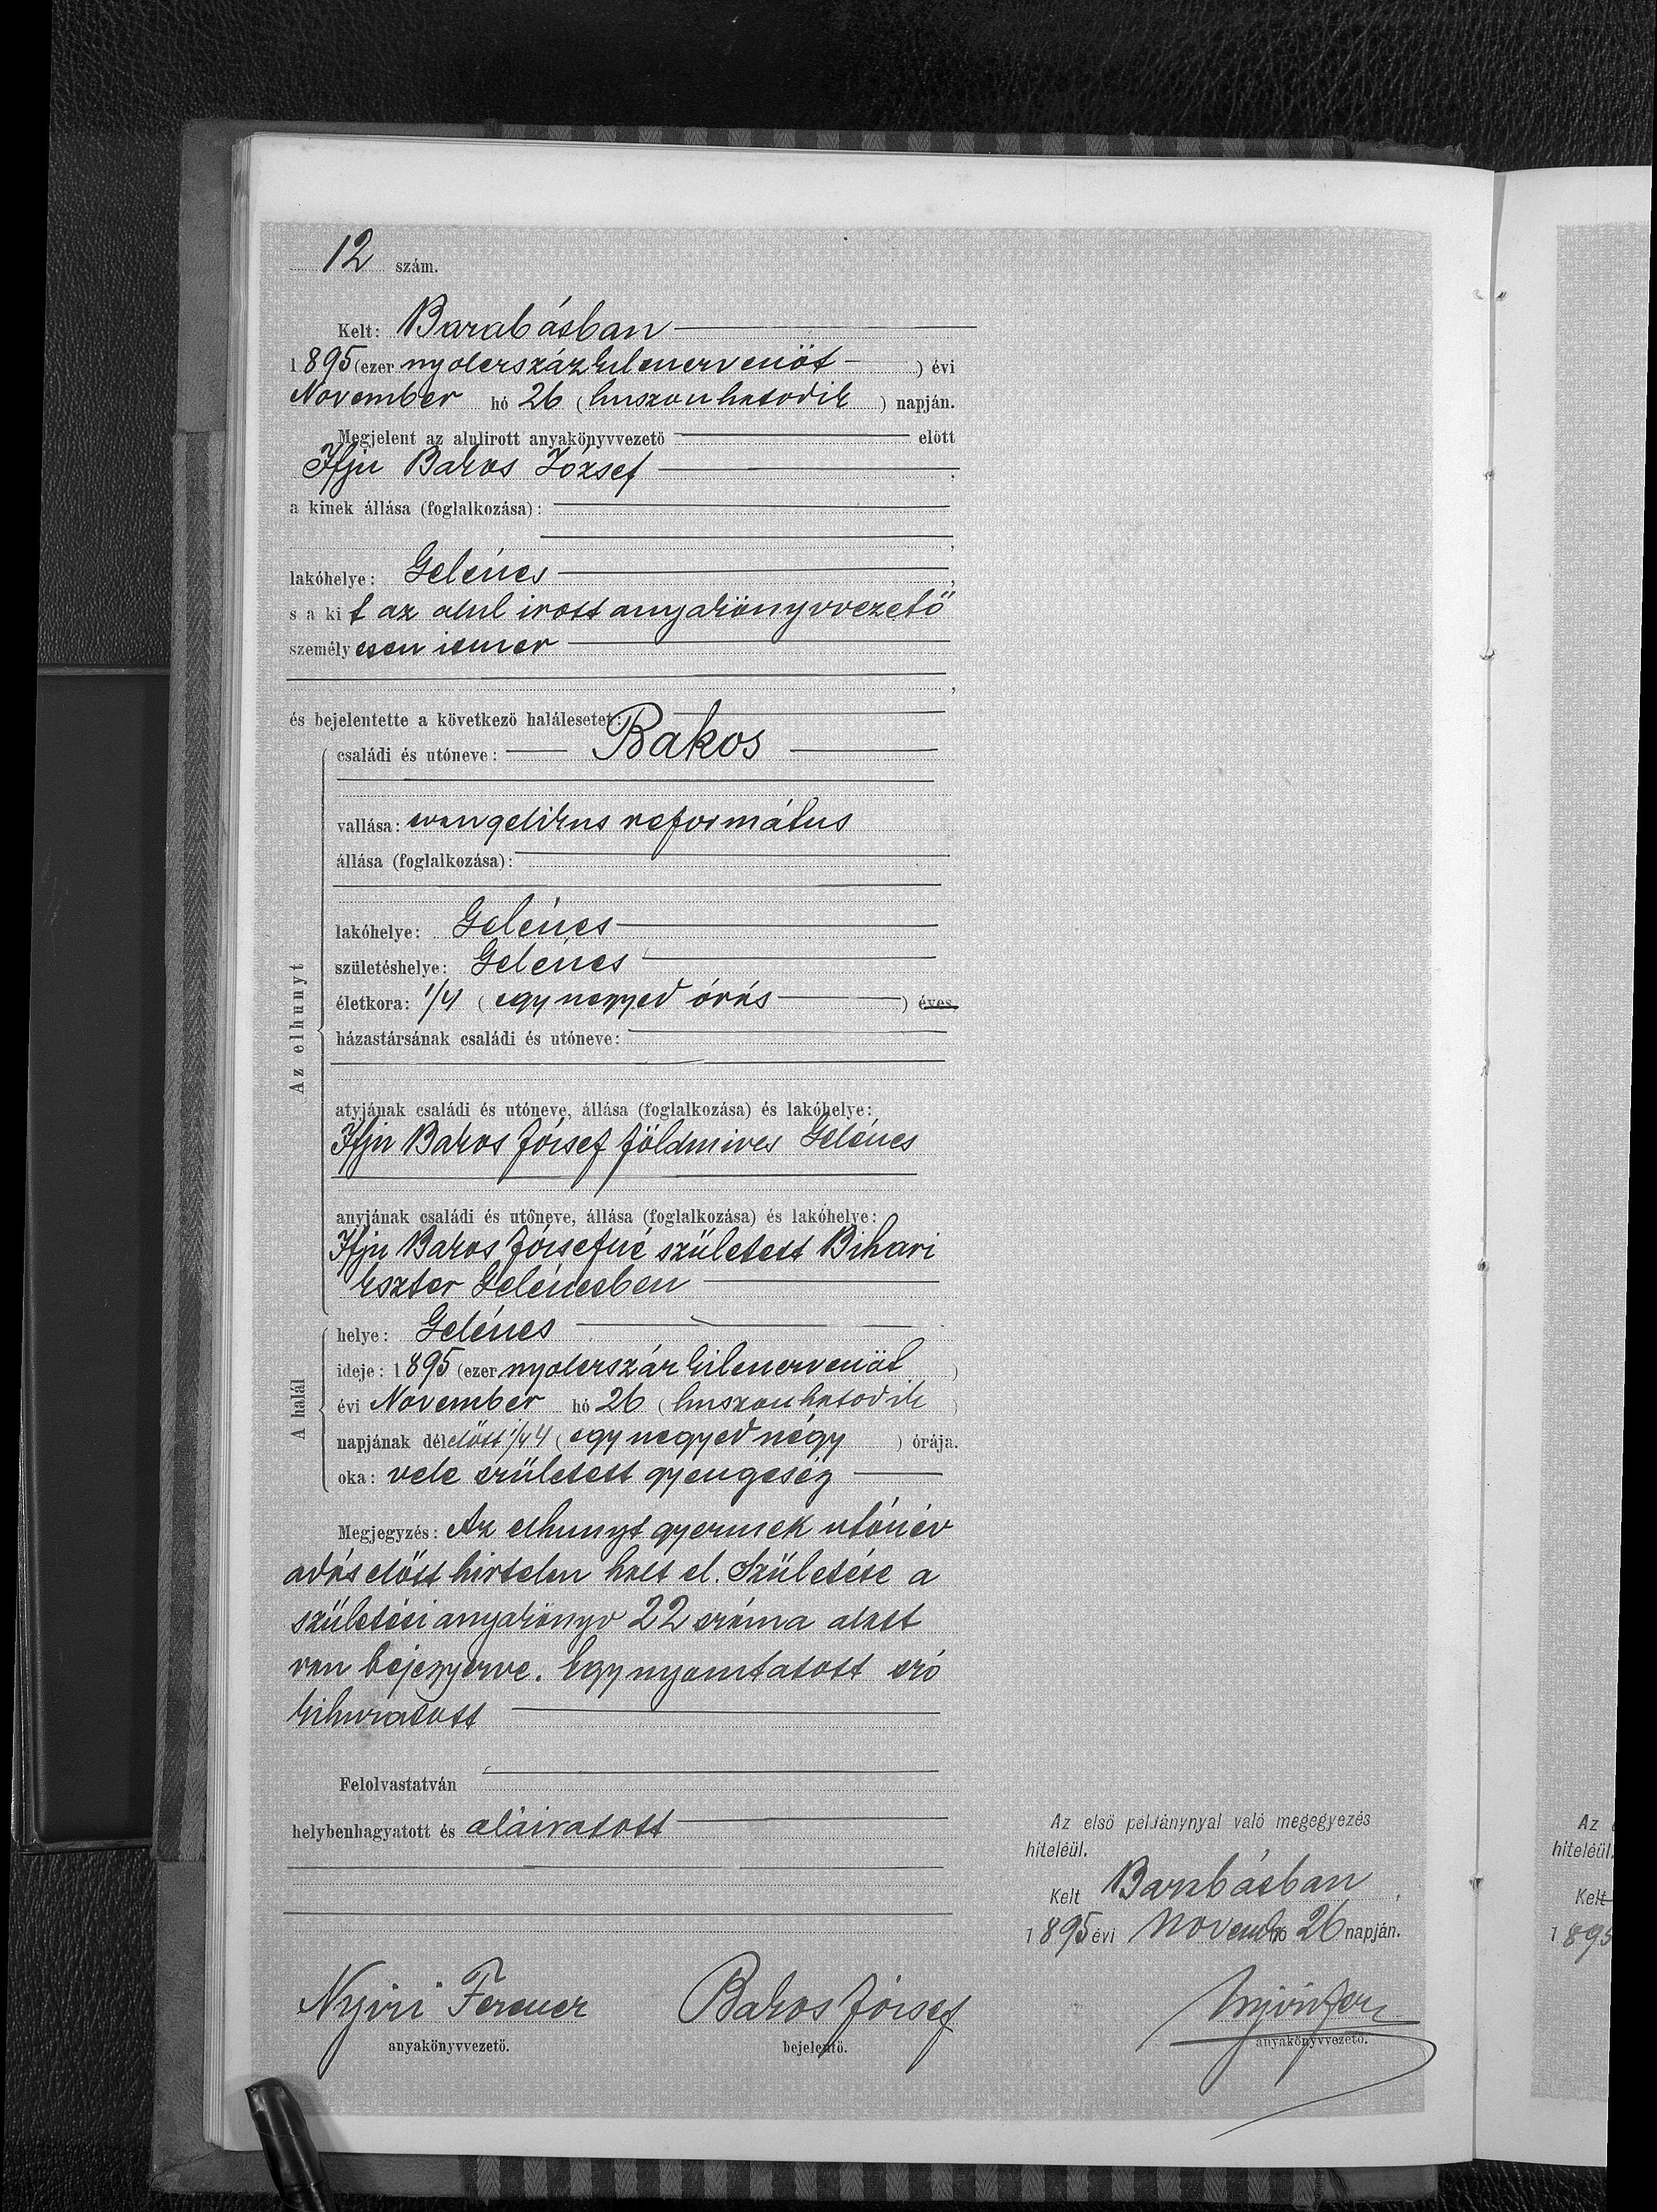 12 szám.
Kelt: Barabásban
1895 (ezer nyolczszázkilenczvenöt) évi
November hó 26 (huszonhatodik) napján.
Megjelent az alulirott anyakönyvvezető előtt
Ifju Bakos József
a kinek állása (foglalkozása):
lakóhelye: Gelénes,
s a kit az alul irott anyakönyvvezető
személyesen ismer
,
és bejelentette a következő halálesetet:
Az elhunyt
családi és utóneve: Bakos
vallása: evangelikus református
állása (foglalkozása):
lakóhelye: Gelénes
születéshelye: Gelénes
életkora: 1/4 (egy negyed órás) éves
házastársának családi és utóneve:
atyjának családi és utóneve, állása (foglalkozása) és lakóhelye:
Ifju Bakos József földmives Gelénes
anyjának családi és utóneve, állása (foglalkozása) és lakóhelye:
Ifju Bakos Józsefné született Bihari
Eszter Gelénesben
A halál
helye: Gelénes
ideje: 1895 (ezer nyolczszázkilenczvenöt)
évi November hó 26 (huszonhatodik)
napjának délelőtt 1/4 4 (egy negyed négy) órája.
oka: vele született gyengeség
Megjegyzés: Az elhunyt gyermek utónév
adás előtt hirtelen halt el. Születése a
születési anyakönyv 22 száma alatt
van bejegyezve. Egy nyomtatott szó
kihuzatott
Felolvastatván
helybenhagyatott és aláiratott
Az első példánynyal való megegyezés
hiteléül.
Kelt Barabásban,
1895 évi Novemb hó 26 napján.
Nyiri Ferencz Bakos József Nyiri Fer
anyakönyvvezető. bejelentő. anyakönyvvezető.
Az
hiteléül.
Kelt
1895